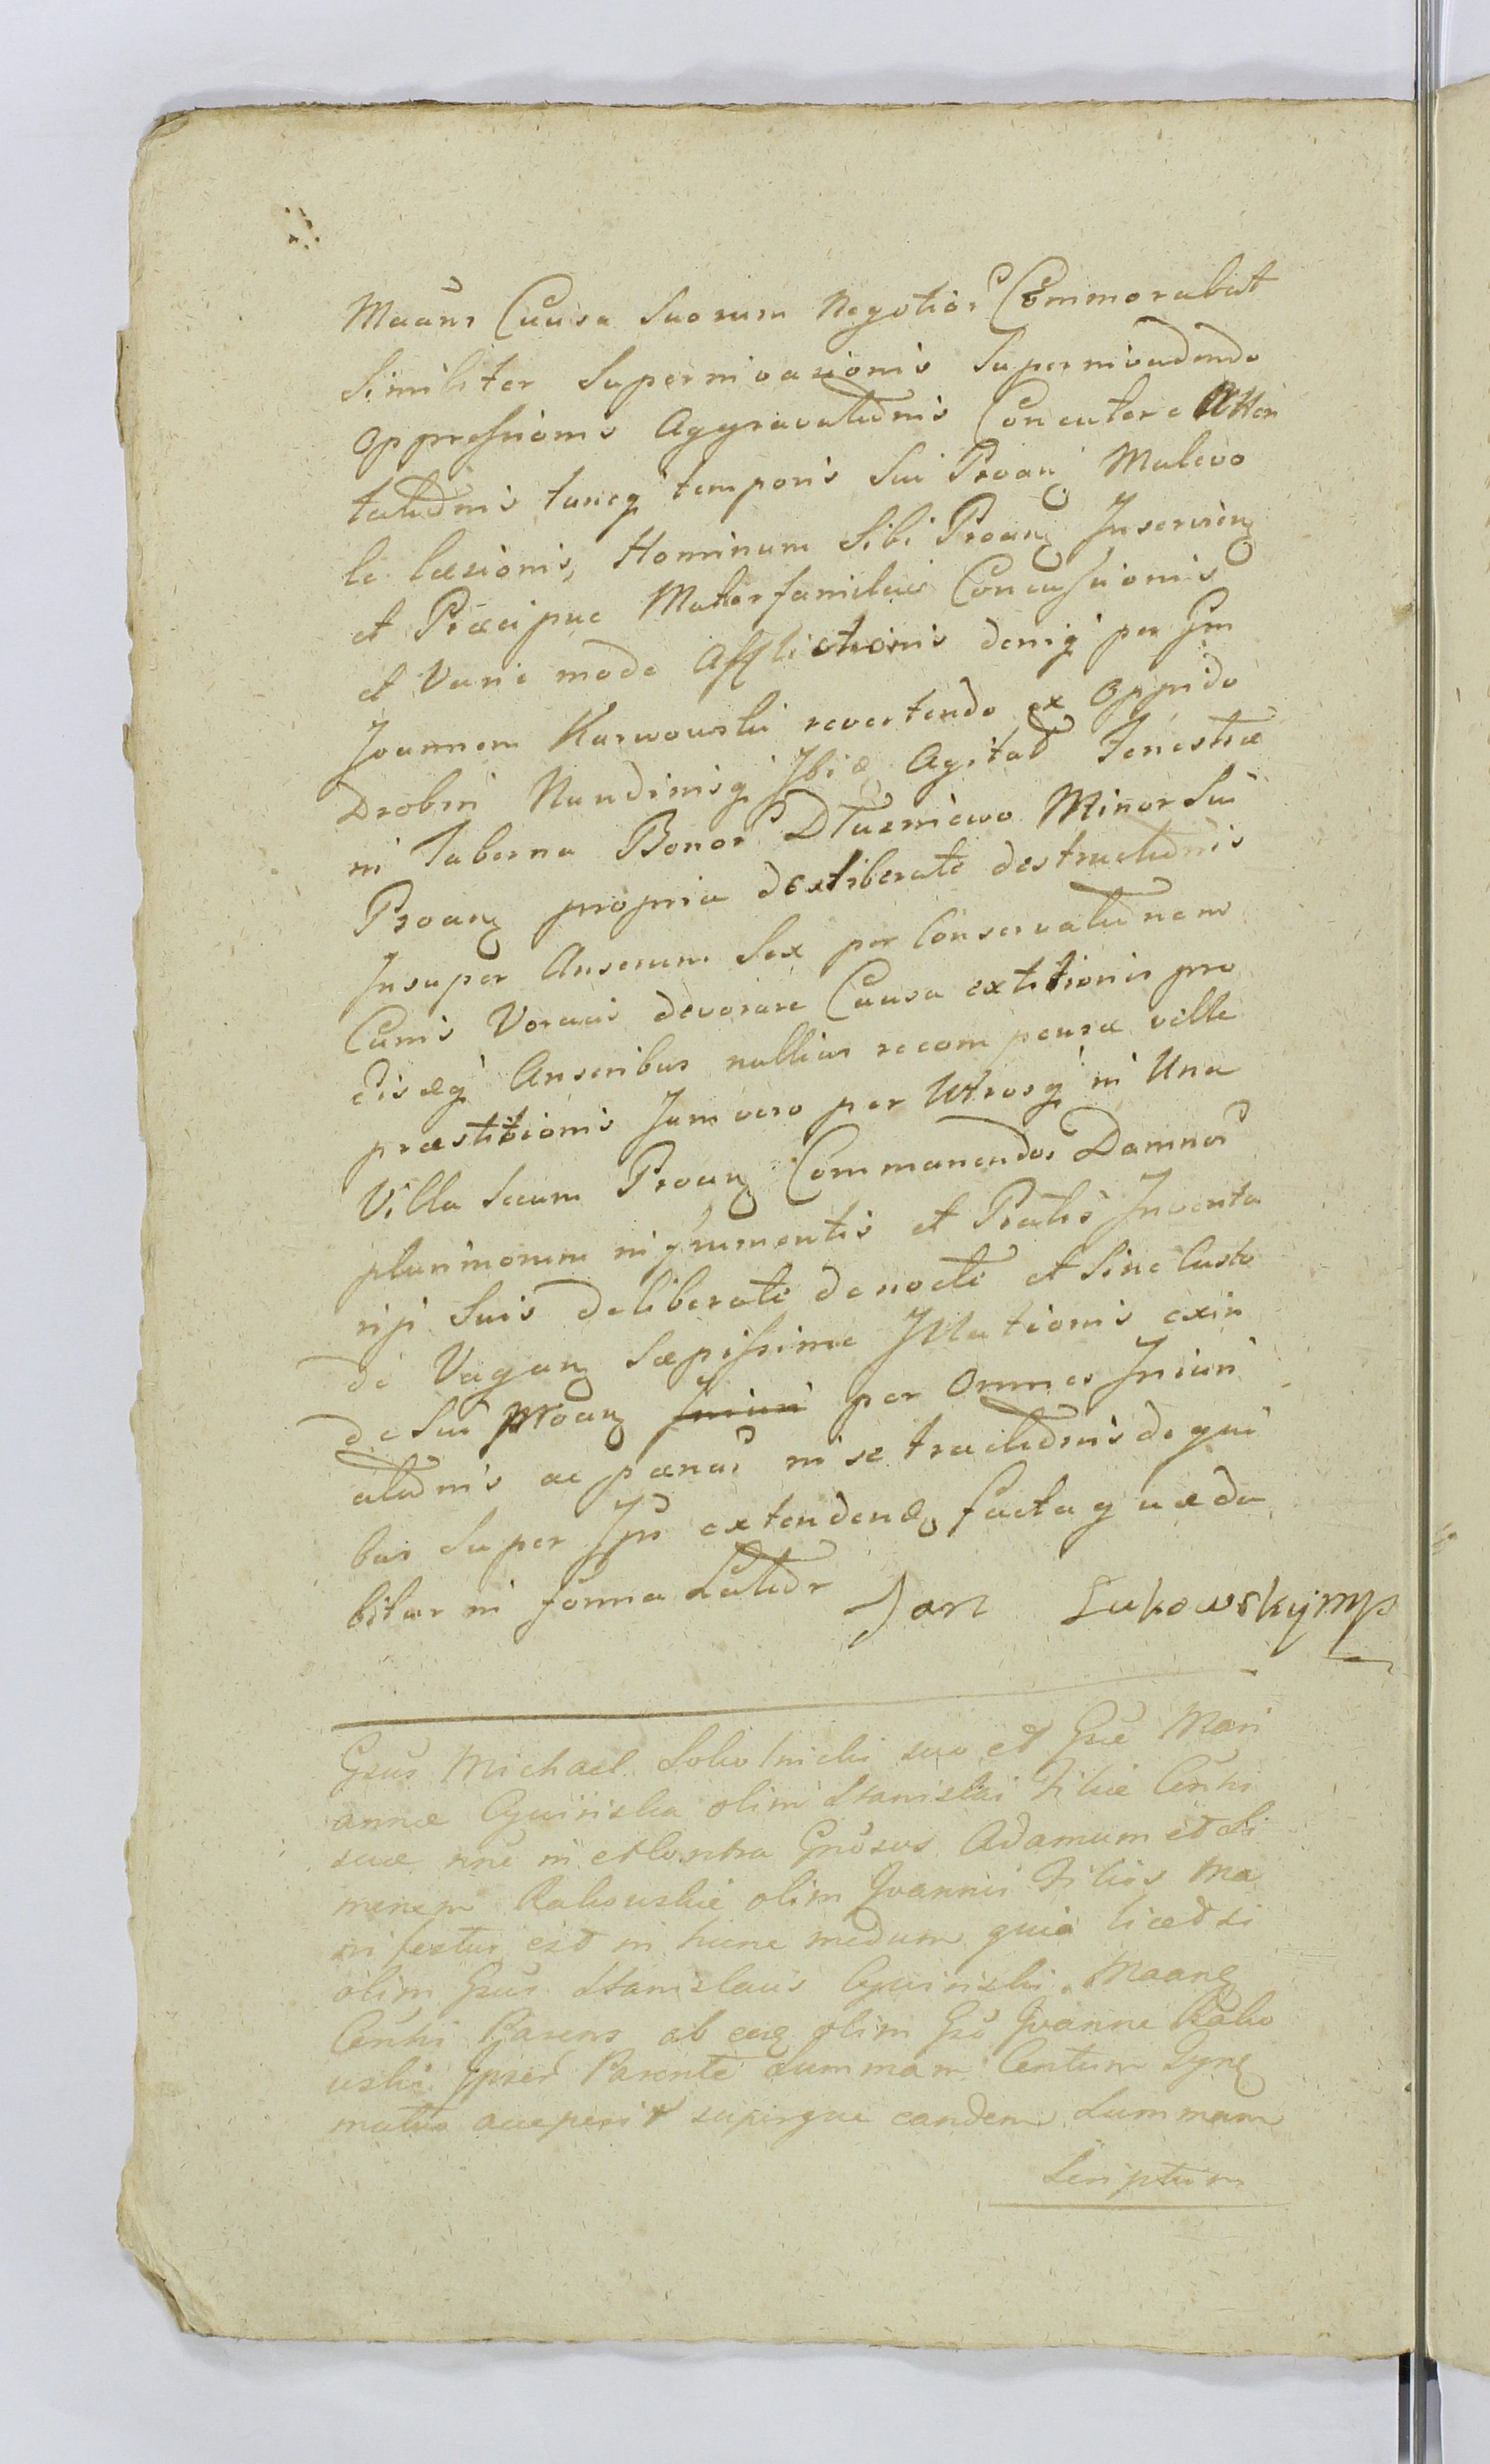 Maans Causa Suorum Negotior Commorabat
Similiter Superinvasionis Superinvadendo
Oppressionis Aggravatīdnis Concutere Atten
tatīdnis tuncq temporis Sui Proanz Malevo
le læsionis, Hominum Sibi Proanz Inservienz
et Præcipue Materfamilias Concussionis
et Varie mode Afflictionis deniq per Gm
Joannem Karwowski revertendo ex Oppido
Drobin Nundinisq Ibidz Agitad Fenestræ
in Taberna Bonor Dłuzniewo Minor Sui
Proanz propria deliberate destructīdnis
Insuper Anserum Sex per Conservatīdnem
Canis Voracis devorare Causa extitionis pro
eisdq Anseribus nullius recompensæ velle
præstitionis Jam vero per Utrosq in Una
Villa Secum Proanz Commanendos Damnor
plurimorum in frumentis et Pratis Inventa
rijs Suis deliberate de nocte et Sine Custo
de Vaganz Sæpissime Illationis exin
de Sui Proanz per Omnes Iniuri
atīdnis ac pænar in se tractīdnis de qui
bus Super Ips extendendz facta q uæda
bitur in forma Latīdr Jan Łukowsky mp
Gsus Michael Sokolnicki suo et Gsæ Mari
annæ Cywinska olim Stanislai Filiæ Conthi
suæ nne in et Contra Gnosos Adamum et Si
monem Rakowskie olim Joannis Filios Ma
nifestus est in hunc modum quia licet si
olim Gsus Stanislaus Cywinski Maanz
Conthi Parens ab eoz olim Gso Joanne Rako
wski Ipser Parente Summam Centum Tynf
mutuo acceperit superque eandem Summam
Scriptum